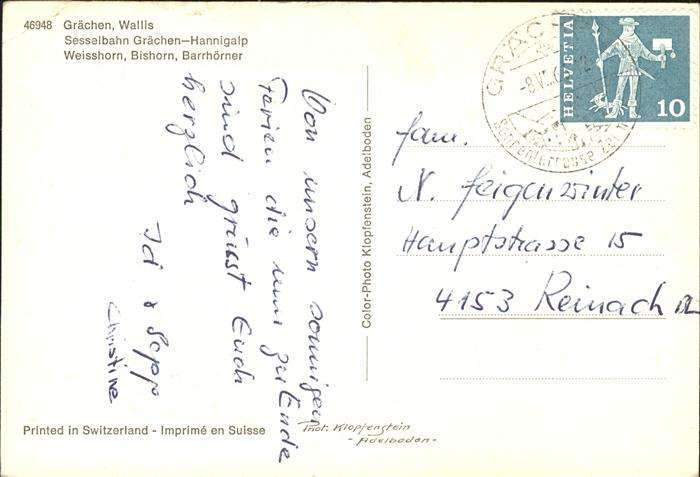 46948 Grächen, Wallis
Sesselbahn Grächen—Hannigalp
Weisshorn, Bishorn, Barrhörner
Von unsern sonnigen
Ferien die nun zu Ende
sind grüsst Euch
herzlich
Id & Sepp
Christine
Color-Photo Klopfenstein, Adelboden
GRÄCHEN
HELVETIA
10
Fam.
N. Feigenwinter
Hauptstrasse 15
4153 Reinach BL
Printed in Switzerland - Imprimé en Suisse
Phot. Klopfenstein
- Adelboden -